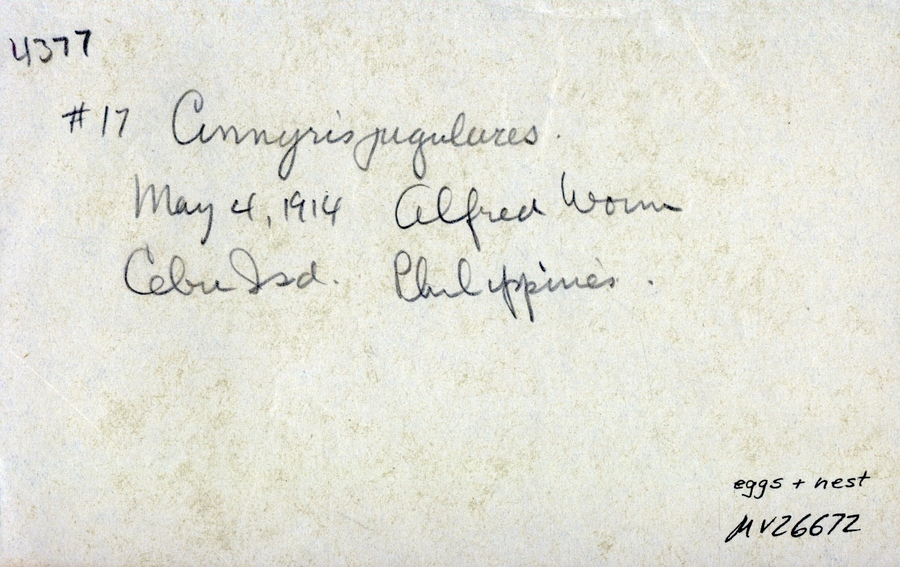 4377
#17 Cinnyris jugulares.
May 4, 1914 Alfred Worm
Cebu Isd. Philippines.
eggs + nest
MV26672